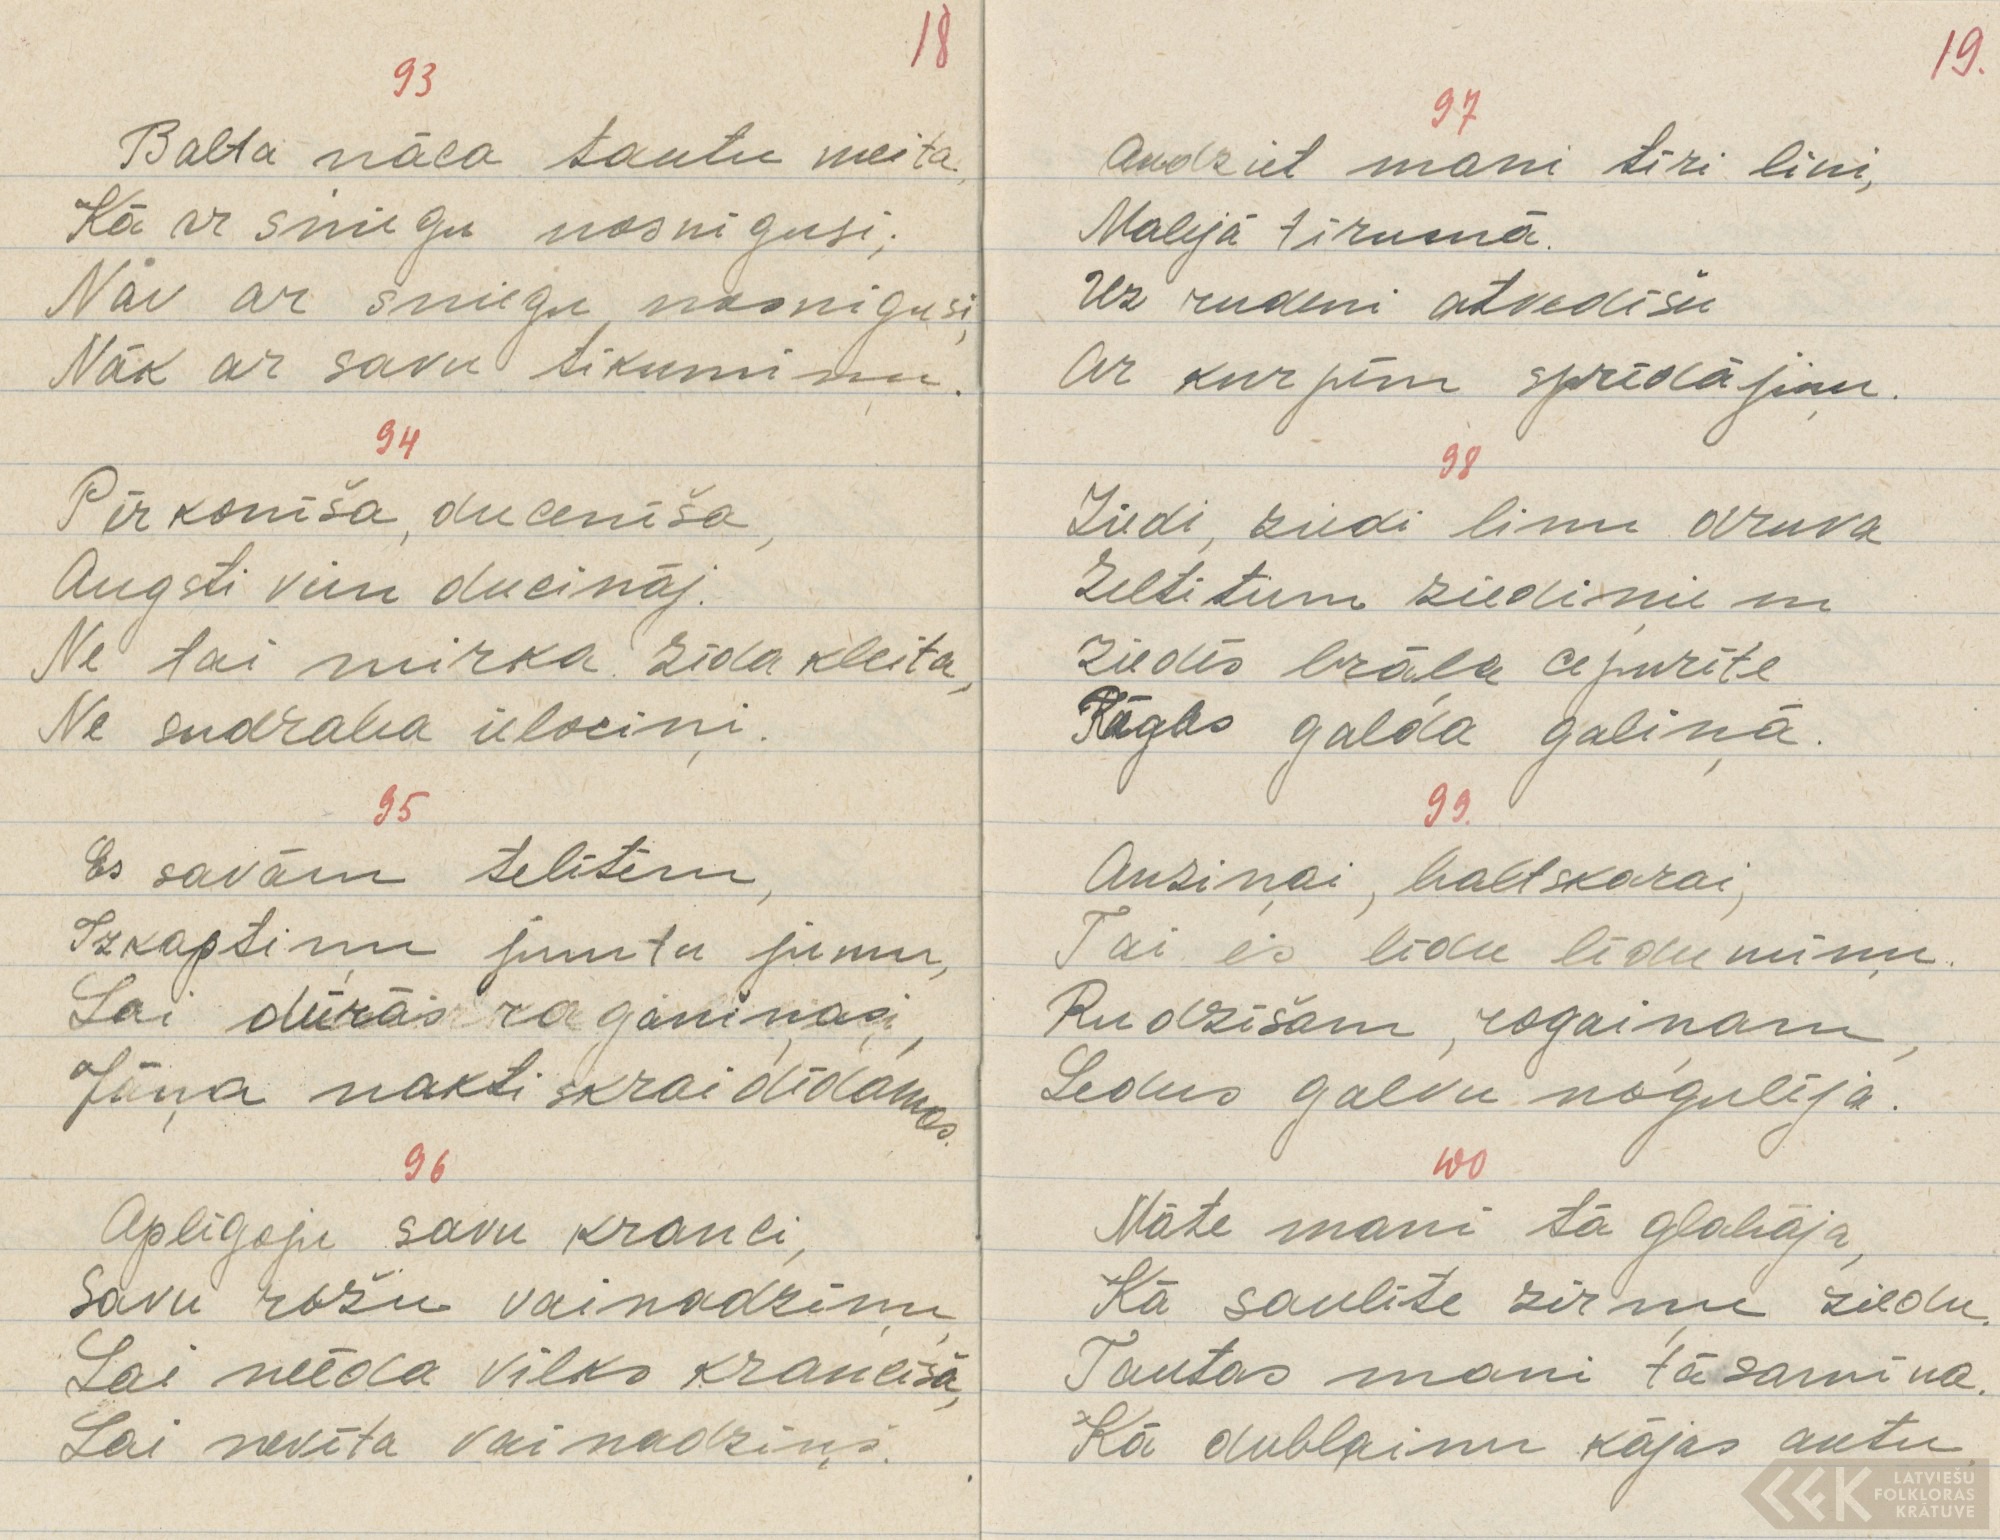 18
93
Balta nāca tautu meita,
Kā ar sniegu nosnigusi;
Nāv ar sniegu nosnigusi,
Nāk ar savu tikumiņu.
94
Pērkonīša, ducenīša,
Augsti vien ducināj.
Ne tai mirka zīda kleita,
Ne sudraba ielociņi.
95
Es savām telītēm,
Izkaptiņu jumtu jumu,
Lai dūrās raganiņas,
Jāņa nakti skraidīdamas.
96
Aplīgoju savu kranci,
Savu rožu vainadziņu,
Lai neēda vilks krancīša,
Lai nevīta vainadziņš.
19.
97
Audziet mani tīri lini,
Malejā tīrumā.
Uz rudeni atvedīšu
Ar kurpēm sprēdājiņu.
98
Ziedi, ziedi linu druva
Zeltitiem ziediņiem
Ziedēs brāļa cepurīte
Rīgas galda galiņā.
99.
Auziņai, baltskarai,
Tai es līdu līdumiņu.
Rudzīšam, rogainam,
Ledus galvu nogulēja.
100
Māte mani tā glabāja,
Kā saulīte zirņu ziedu.
Tautas mani tā samina.
Kā dubļainu kājas autu.
LATVIEŠU
FOLKLORAS
KRĀTUVE